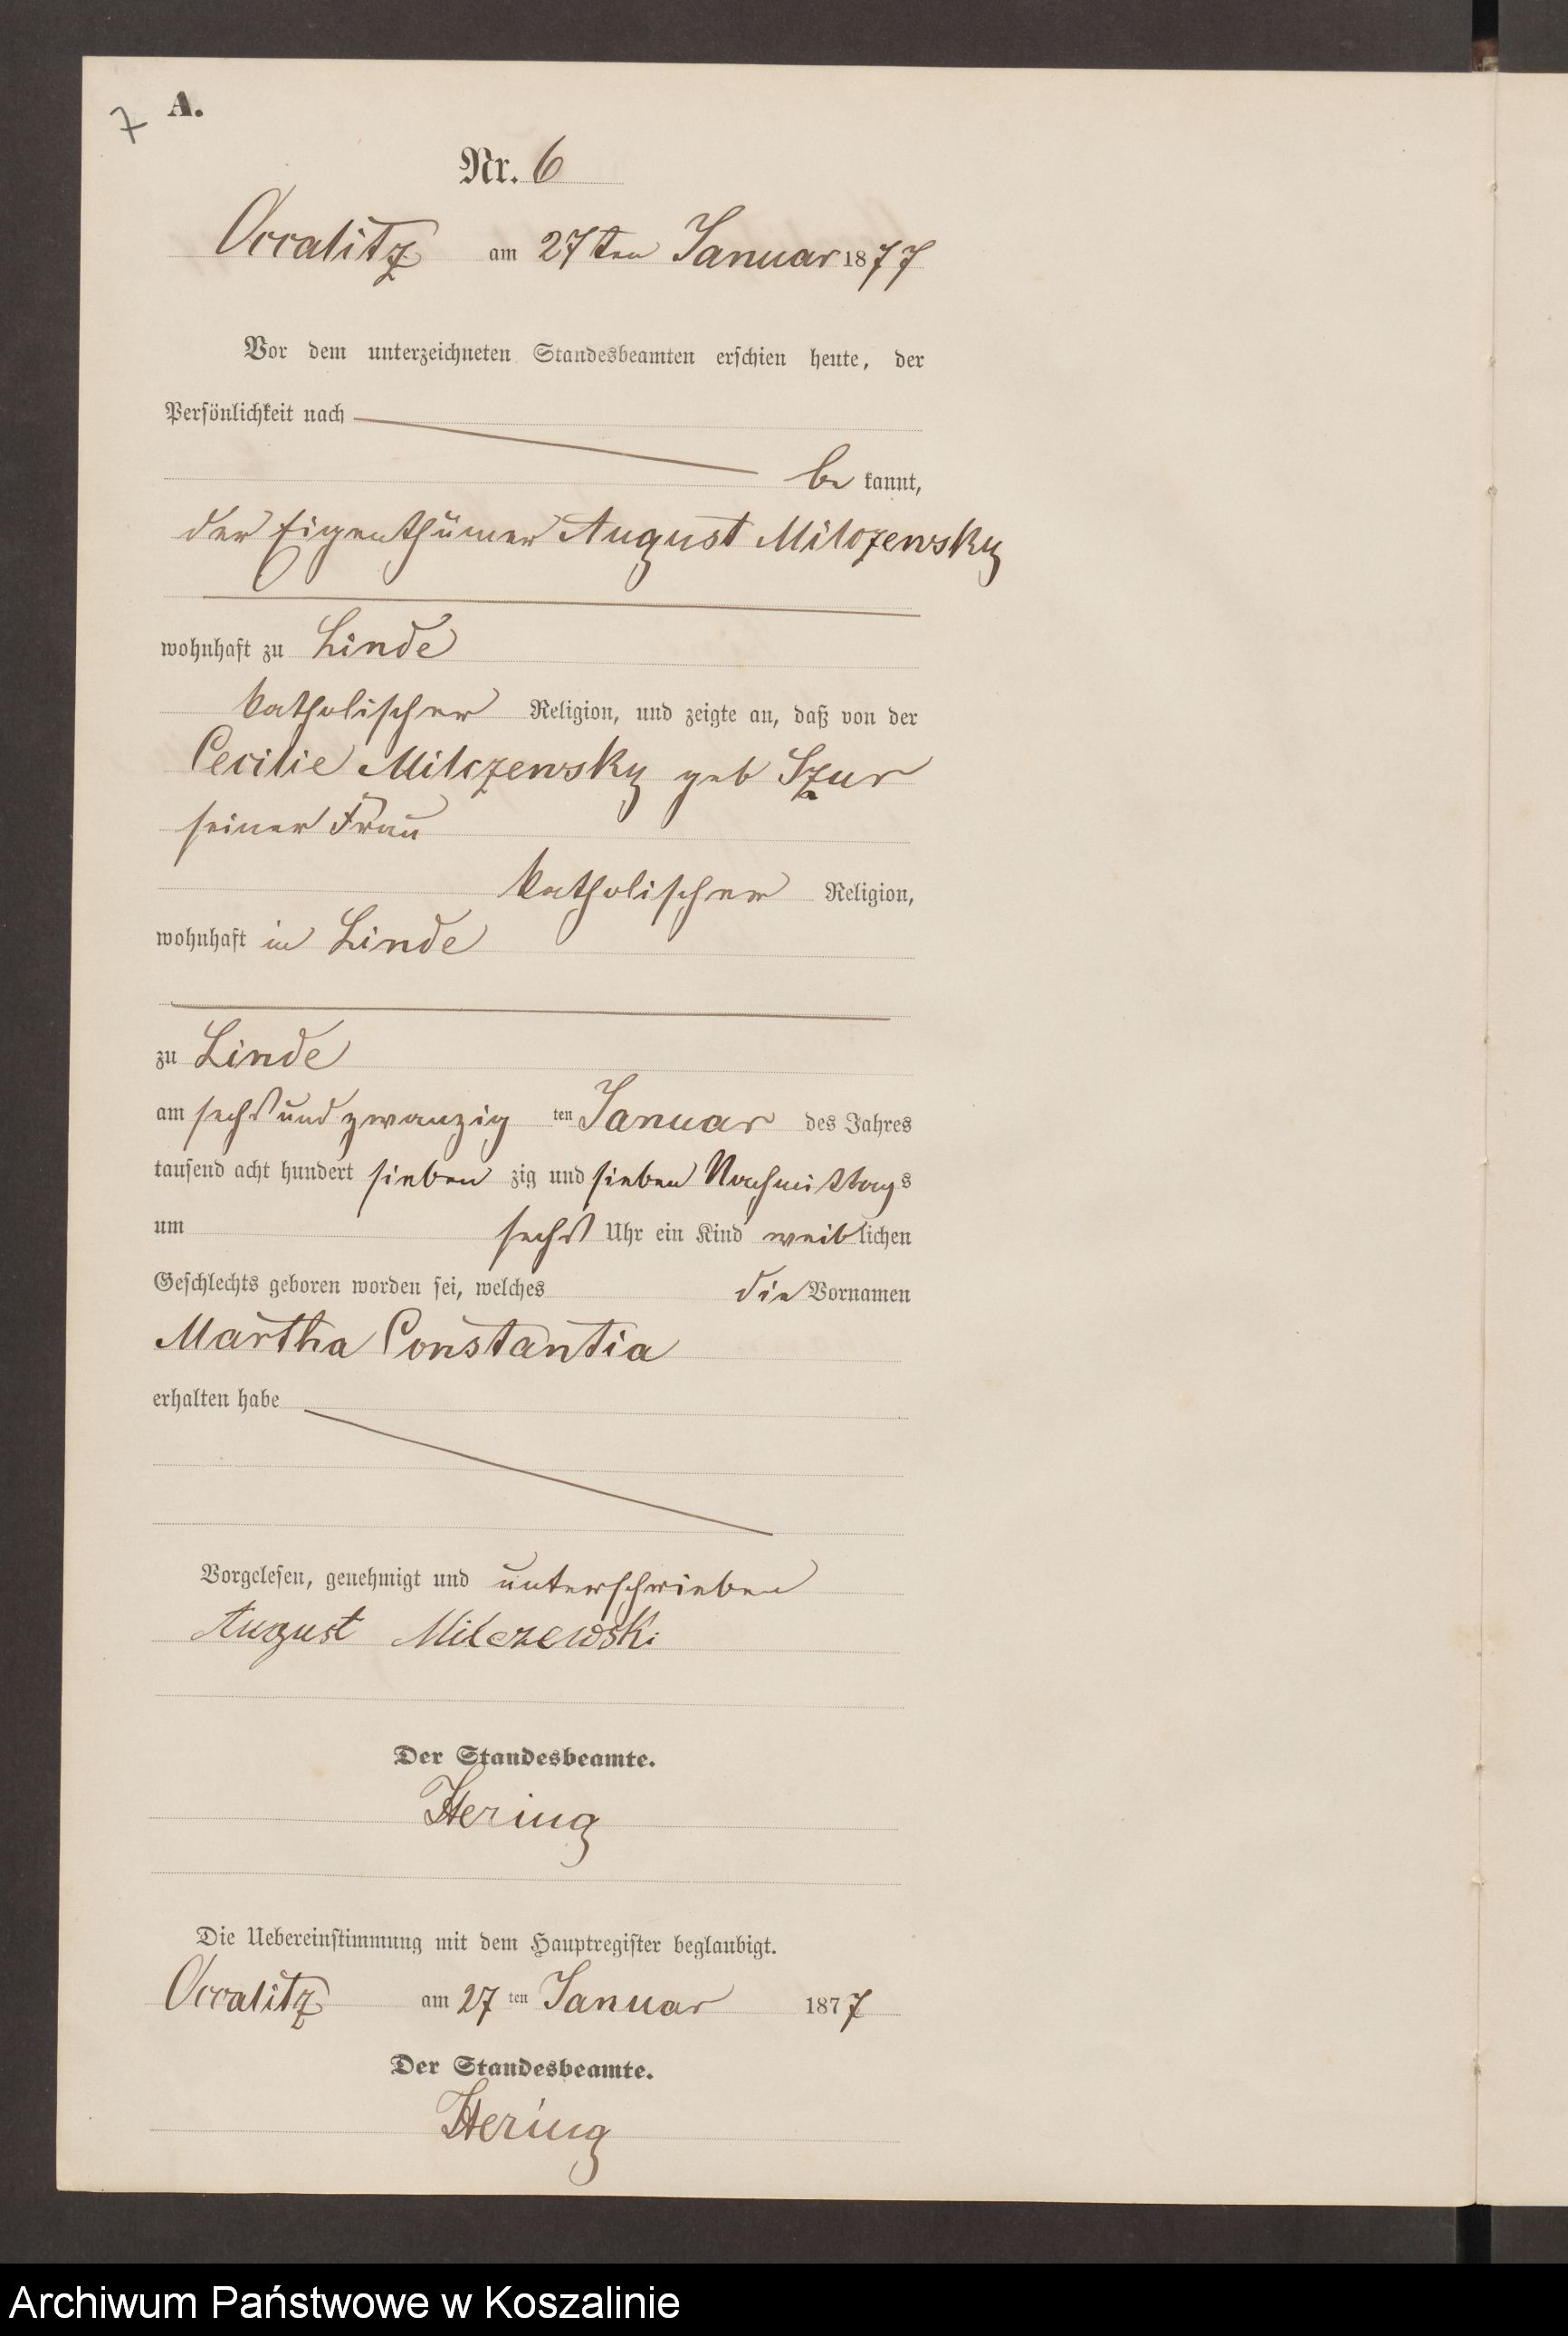 7 A.
Nr. 6
Occalitz am 27ten Januar 1877
Vor dem unterzeichneten Standesbeamten erschien heute, der
Persönlichkeit nach
be kannt,
der Eigenthümer August Milczewsky
wohnhaft zu Linde
katholischer Religion, und zeigte an, daß von der
Cecilie Milczewsky geb Szur
seiner Frau
katholischer Religion,
wohnhaft in Linde
zu Linde
am sechs und zwanzig ten Januar des Jahres
tausend acht hundert sieben zig und sieben Nachmittags
um sechs Uhr ein Kind weiblichen
Geschlechts geboren worden sei, welches die Vornamen
Martha Constantia
erhalten habe
Vorgelesen, genehmigt und unterschrieben
August Milczewski
Der Standesbeamte.
Hering
Die Uebereinstimmung mit dem Hauptregister beglaubigt.
Occalitz am 27 ten Januar 1877
Der Standesbeamte.
Hering
Archiwum Państwowe w Koszalinie